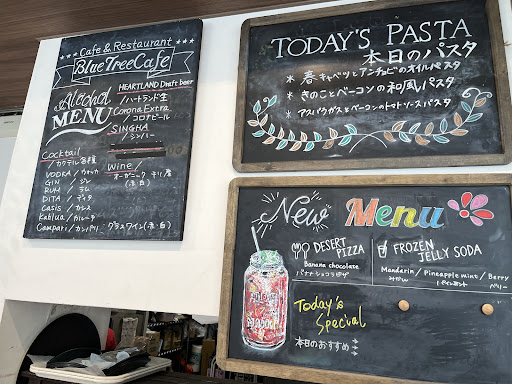 Cafe & Restaurant
Blue Tree Cafe
Alcohol
MENU
HEARTLAND Draft beer
/ハートランド生
Corona Extra
/コロナビール
SINGHA
/シンハー
Cocktail
/カクテル各種
VODKA/ウォッカ
GIN/ジン
RUM/ラム
DITA/ディタ
Casis/カシス
Kahlua/カルーア
Campari/カンパリ
Wine/
/オーガニック チリ産
(赤・白)
グラスワイン(赤・白)
TODAY'S PASTA
本日のパスタ
* 春キャベツとアンチョビのオイルパスタ
* きのことベーコンの和風パスタ
* アスパラガスとベーコンのトマトソースパスタ
New Menu
DESERT
PIZZA
Banana chocolate
バナナショコラピザ
FROZEN
JELLY SODA
Mandarin/Pineapple mint/Berry
みかん
パインミント
ベリー
Today's
Special
本日のおすすめ